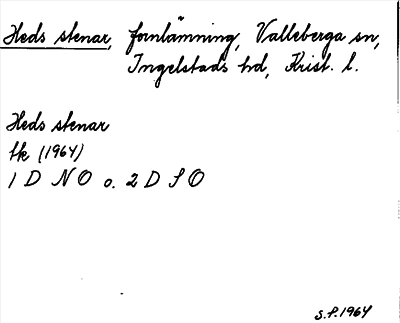 Heds stenar, fornlämning, Valleberga sn,
Ingelstads hd, Krist. l.
Heds stenar
tk (1964)
1 D NO o. 2 D SO
S.F. 1964